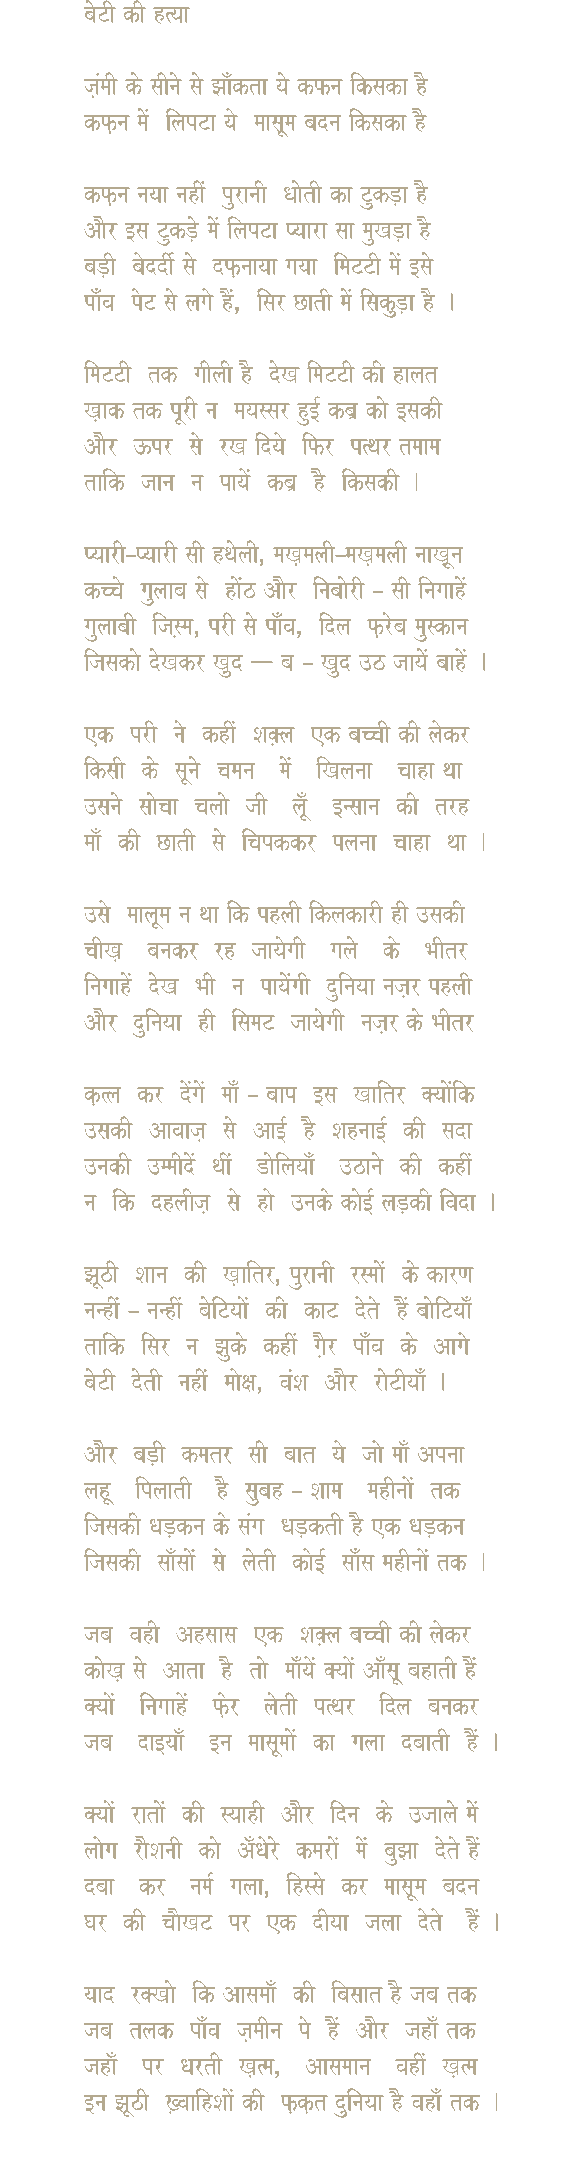 बेटी की हत्या
ज़ंमी के सीने से झाँकता ये कफन किसका है
कफ़न में लिपटा ये मासूम बदन किसका है
कफ़न नया नहीं पुरानी धोती का टुकड़ा है
और इस टुकड़े में लिपटा प्यारा सा मुखड़ा है
बड़ी बेदर्दी से दफ़नाया गया मिटटी में इसे
पाँव पेट से लगे हैं, सिर छाती में सिकुड़ा है ।
मिटटी तक गीली है देख मिटटी की हालत
ख़ाक तक पूरी न मयस्सर हुई कब्र को इसकी
और ऊपर से रख दिये फिर पत्थर तमाम
ताकि जान न पायें कब्र है किसकी ।
प्यारी–प्यारी सी हथेली, मख़मली–मख़मली नाख़ून
कच्चे गुलाब से होंठ और निबोरी – सी निगाहें
गुलाबी जिस़्म, परी से पाँव, दिल फ़रेब मुस्कान
जिसको देखकर खुद — ब – खुद उठ जायें बाहें ।
एक परी ने कहीं शक़्ल एक बच्ची की लेकर
किसी के सूने चमन में खिलना चाहा था
उसने सोचा चलो जी लूँ इन्सान की तरह
माँ की छाती से चिपककर पलना चाहा था ।
उसे मालूम न था कि पहली किलकारी ही उसकी
चीख़ बनकर रह जायेगी गले के भीतर
निगाहें देख भी न पायेंगी दुनिया नज़र पहली
और दुनिया ही सिमट जायेगी नज़र के भीतर
क़त्ल कर देंगें माँ – बाप इस खातिर क्योंकि
उसकी आवाज़ से आई है शहनाई की सदा
उनकी उम्मीदें थीं डोलियाँ उठाने की कहीं
न कि दहलीज़ से हो उनके कोई लड़की विदा ।
झूठी शान की ख़ातिर, पुरानी रस्मों के कारण
नन्हीं – नन्हीं बेटियों की काट देते हैं बोटियाँ
ताकि सिर न झुके कहीं ग़ैर पाँव के आगे
बेटी देती नहीं मोक्ष, वंश और रोटीयाँ ।
और बड़ी कमतर सी बात ये जो माँ अपना
लहू पिलाती है सुबह – शाम महीनों तक
जिसकी धड़कन के संग धड़कती है एक धड़कन
जिसकी साँसों से लेती कोई साँस महीनों तक ।
जब वही अहसास एक शक़्ल बच्ची की लेकर
कोख़ से आता है तो माँयें क्यों आँसू बहाती हैं
क्यों निगाहें फ़ेर लेती पत्थर दिल बनकर
जब दाइयाँ इन मासूमों का गला दबाती हैं ।
क्यों रातों की स्याही और दिन के उजाले में
लोग रौशनी को अँधेरे कमरों में बुझा देते हैं
दबा कर नर्म गला, हिस्से कर मासूम बदन
घर की चौखट पर एक दीया जला देते हैं ।
याद रक्खो कि आसमाँ की बिसात है जब तक
जब तलक पाँव ज़मीन पे हैं और जहाँ तक
जहाँ पर धरती ख़त्म, आसमान वहीं ख़त्म
इन झूठी ख़्वाहिशों की फ़क़त दुनिया है वहाँ तक ।